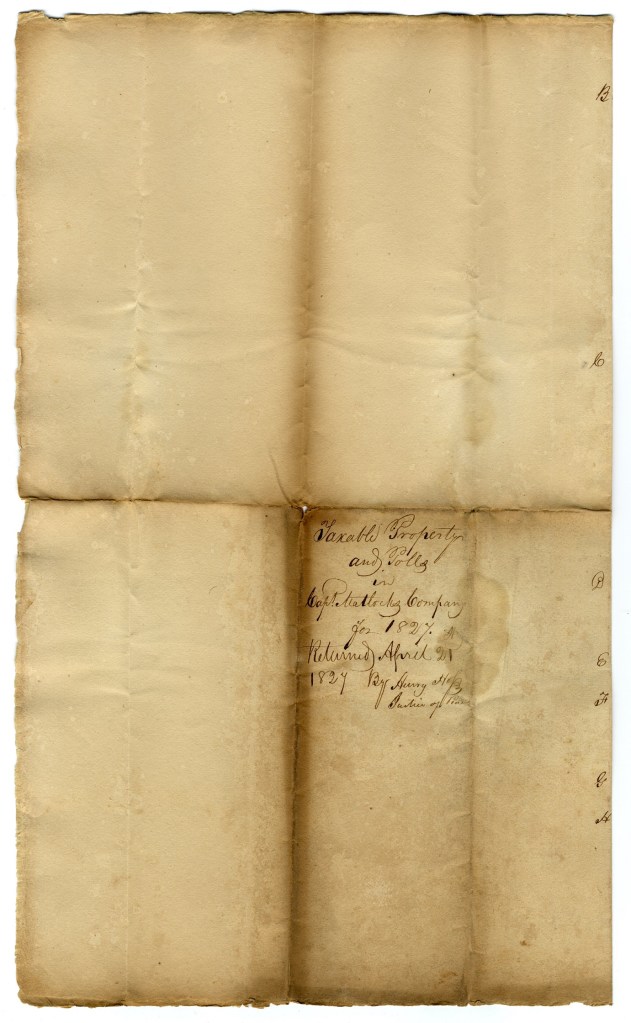 B
C
Taxable Property
and Polls
in
Capt. Matlocks Company
for 1827.
Returned April 21
1827 By Henry
Justice of
D
E
F
G
H